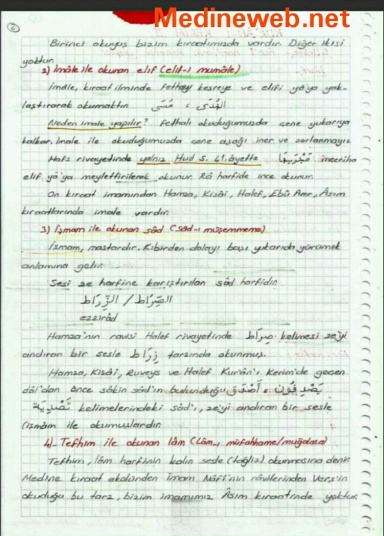 Medineweb.net
2
Birinci okuyuş bizim kıraatımızda vardır. Diğer ikisi
yoktur.
2) İmâle ile okunan elif (elif-i mumâle)
İmâle, kıraat ilminde fethayı kesreye ve elifi yâ'ya yak-
laştırarak okumaktır. اَلْهُدَى ، مُوسَى
Neden imale yapılır? Fethalı okuduğumuzda çene yukarıya
kalkar. İmale ile okuduğumuzda çene aşağı iner ve zorlanmayız.
Hafs rivayetinde yalnız Hud s. 41. âyette مَجْرٰيهَا mecriha
elif yâ'ya meylettirilerek okunur. Râ harfide ince okunur.
On kıraat imamından Hamza, Kisâi, Halef, Ebû Amr, Âsım
kıraatlarında imale vardır.
3) İşmam ile okunan sâd (sâd-ı müşemmeme)
İşmam, mastardır. Kibirden dolayı başı yukarıda yürümek
anlamına gelir.
Sesi ze harfine karıştırılan sâd harfidir.
الصِّرَاط / الزِّرَاط
ezzirâd
Hamza'nın ravisi Halef rivayetinde صِرَاط kelimesi ze'yi
andıran bir sesle زِرَاط tarzında okunmuş.
Hamza, Kisâi, Ruveys ve Halef Kurân'ı Kerim'de geçen
dâl'dan önce sâkin sâd'ın bulunduğu يَصْدِفُونَ ، أَصْدَقُ
تَصْدِيَة kelimelerindeki sâd'ı, ze'yi andıran bir sesle
işmâm ile okumuşlardır.
4) Tefhim ile okunan lâm (Lâm-ı müfahhame/muğallaza)
Tefhim, lâm harfinin kalın sesle (tağliz) okunmasına denir.
Medine kıraat ekolünden İmam Nâfi'nin râvilerinden Verş'in
okuduğu bu tarz, bizim imamımız Âsım kıraatinde yoktur.